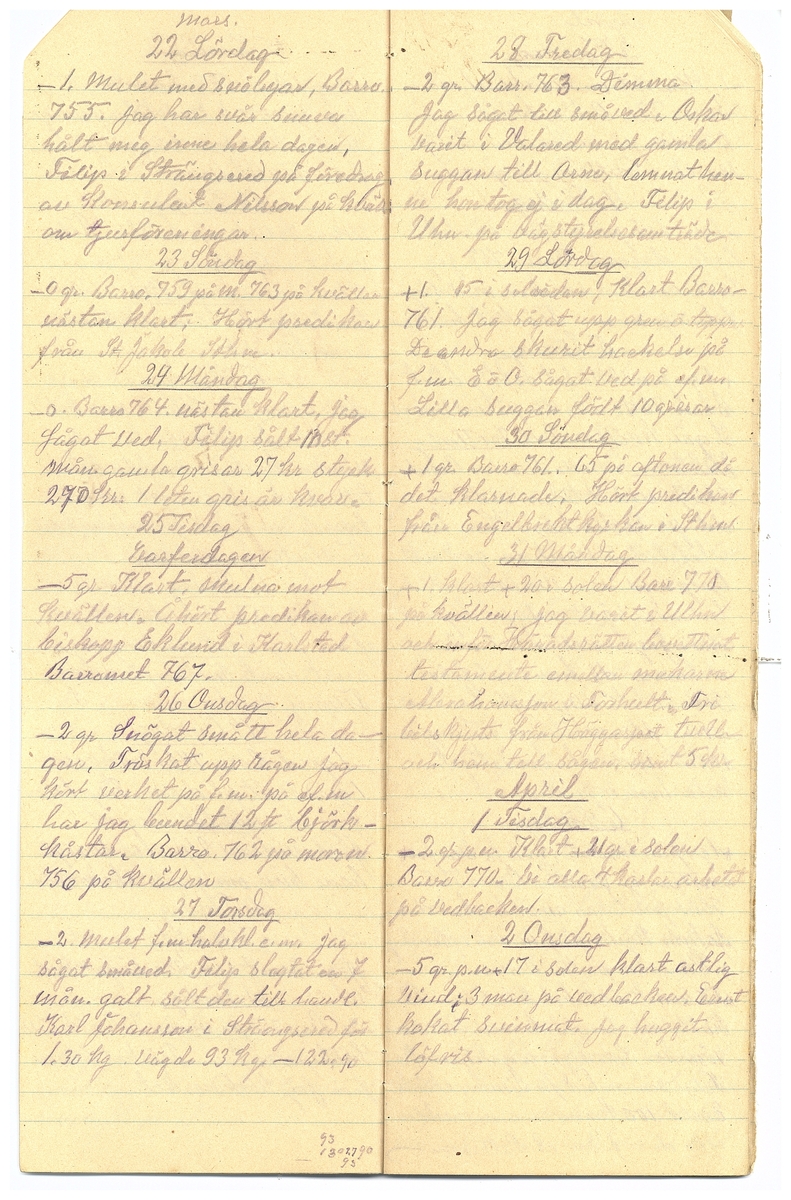 Mars.
22 Lördag
-1. Mulet med snöbyar, Barro.
755. jag har svår snuva
hålt mig inne hela dagen,
Filip i Strängsered på föredrag
av Konsulent Nilsson på kväll
om tjurföreningar.
23 Söndag
-0 gr. Barro. 759 på m. 763 på kvällen
nästan klart, Hört predikan
från St Jakobs Sthm.
24 Måndag
-0. Barro 764. nästan klart, jag
sågat ved, Filip sålt 10 st.
mån. gamla grisar 27 kr styck
270 kr. 1 liten gris är kvar.
25 Tisdag
Varferdagen
-5 gr. Klart, mulna mot
kvällen. Åhört predikan av
biskopp Eklund i Karlstad
Barromet 767.
26 Onsdag
-2 gr Snögat smått hela da-
gen, Tröskat upp rågen jag
kört verket på f.m. på ef.m
har jag bundet 12 st björk-
kåstar. Barro. 762 på moron.
756 på kvällen
27 Torsdag
-2. Mulet f.m halvkl. e.m. jag
sågat småved. Filip slagtat en 7
mån. galt. sålt den till handl.
Karl Johansson i Strängsered för
1.30 kg vägde 93 kg. - 122,90
93
130 2790
93
28 Fredag
-2 gr. Barr. 763. Dimma
Jag sågat till småved. Oskar
varit i Valared med gamla
suggan till Arne, lemnat hen-
ne hon tog ej i dag. Filip i
Uhn på vägstyrelsesamträde
29 Lördag
+1. 15 i solsidan, Klart Barro-
761. Jag sågat upp gren o toppr.
De andra skurit hackelse på
f.m. E o O. sågat ved på ef.m
Lilla suggan födt 10 grisar
30 Söndag
+1 gr Barro 761. 65 på aftonen då
det klarnade, Hört predikan
från Engelbrektkyrkan i Sthm
31 Måndag
+1 klart +20 i solen Baro 770
på kvällen, jag varit i Uhn
och inför Häradsrätten
testamente emellan makarna
Abrahamsson i Foxhult. Fri
bilskjuts från Höggasjort
och hem till sågen,
April
1 Tisdag
-2 gr p.n. Klart +21 gr i solen
Barro 770. Vi alla 4 karlar arbetat
på vedbacken.
2 Onsdag
-5 gr. p.n +17 i solen klart ostlig
vind, 3 man på vedbacken, Ernst
kokat svinmat. Jag huggit
löfris